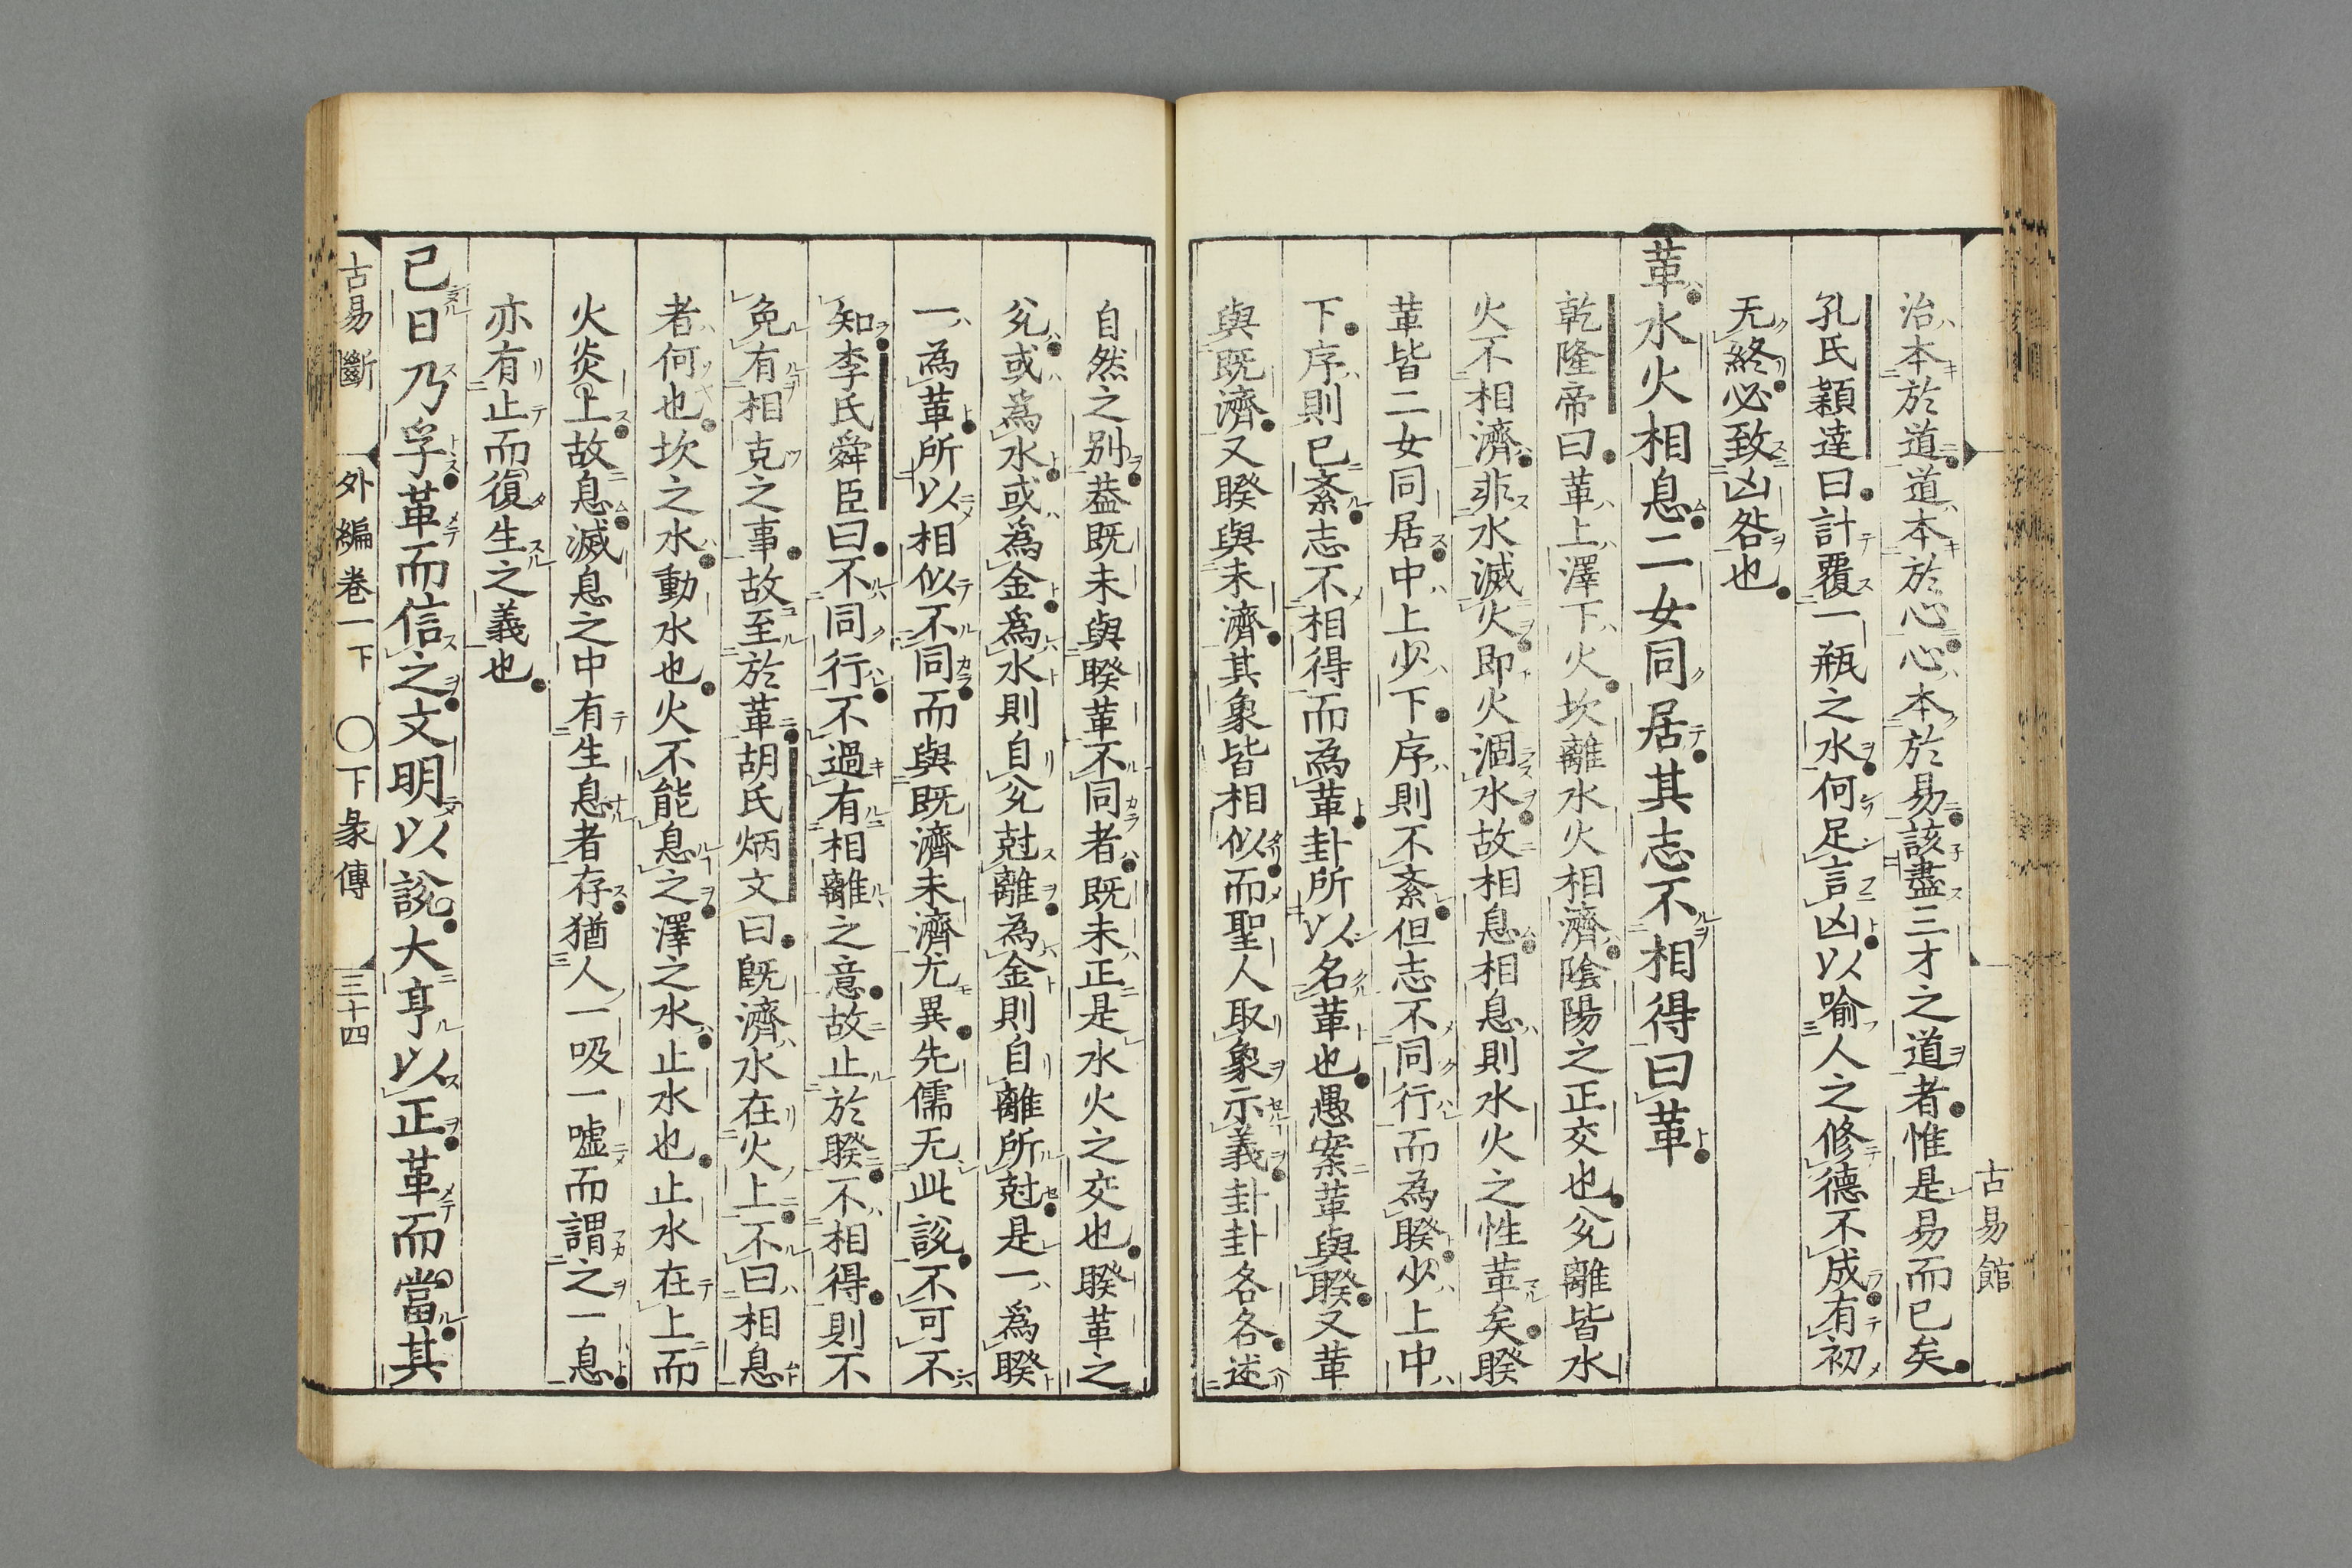 古易館
治本於道道本於心心本於易該盡三才之道者惟是易而已矣
孔氏穎達曰計覆一瓶之水何足言凶以喻人之修德不成有初
无終必致凶咎也
革水火相息二女同居其志不相得曰革
乾隆帝曰革上澤下火坎離水火相濟陰陽之正交也兊離皆水
火不相濟非水滅火即火涸水故相息相息則水火之性革矣睽
革皆二女同居中上少下序則不紊但志不同行而為睽少上中
下序則已紊志不相得而為革卦所以名革也愚案革與睽又革
與既濟又睽與未濟其象皆相似而聖人取象示義卦卦各各述
自然之別葢既未與睽革不同者既未正是水火之交也睽革之
兊或為水或為金為水則自兊尅離為金則自離所尅是一為睽
一為革所以相似不同而與既濟未濟尤異先儒无此說不可不
知李氏舜臣曰不同行不過有相離之意故止於睽不相得則不
免有相克之事故至於革胡氏炳文曰既濟水在火上不曰相息
者何也坎之水動水也火不能息之澤之水止水也止水在上而
火炎上故息滅息之中有生息者存猶人一吸一噓而謂之一息
亦有止而復生之義也
已日乃孚革而信之文明以說大亨以正革而當其
古易斷 外編卷一下 〇下彖傳 三十四